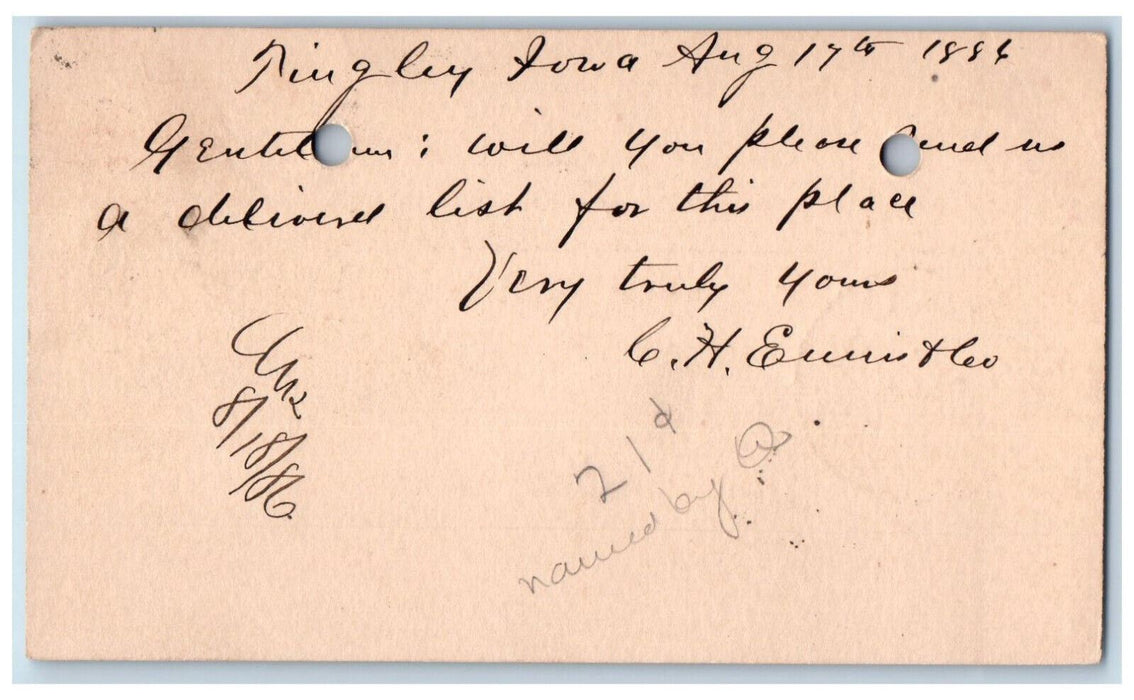 Tingley Iowa Aug 17th 1886
Gentlemen: will you please send us
a delivered list for this place
Very truly yours
C. H. Ennis & Co
8/18/86
21 d
named by